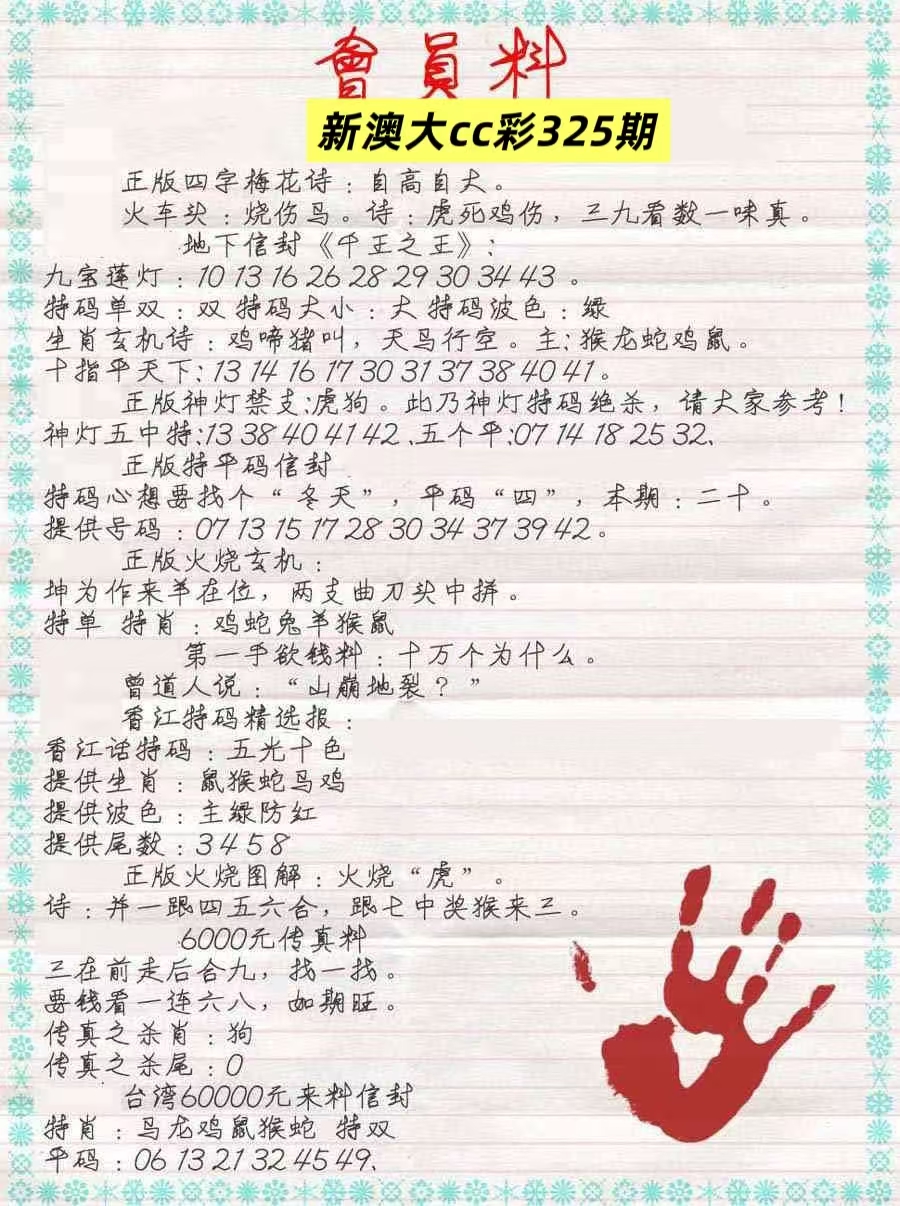 會員料
新澳大cc彩325期
正版四字梅花诗：自高自大。
火车头：烧伤马。诗：虎死鸡伤，三九看数一味真。
地下信封《千王之王》：
九宝莲灯：10 13 16 26 28 29 30 34 43 。
特码单双：双 特码大小：大 特码波色：绿
生肖玄机诗：鸡啼猪叫，天马行空。主：猴龙蛇鸡鼠。
十指平天下：13 14 16 17 30 31 37 38 40 41。
正版神灯禁支：虎狗。此乃神灯特码绝杀，请大家参考！
神灯五中特：13 38 40 41 42、五个平：07 14 18 25 32、
正版特平码信封
特码心想要找个“冬天”，平码“四”，本期：二十。
提供号码：07 13 15 17 28 30 34 37 39 42。
正版火烧玄机：
坤为作来羊在位，两支曲刀头中拼。
特单 特肖：鸡蛇兔羊猴鼠
第一手欲钱料：十万个为什么。
曾道人说：“山崩地裂？”
香江特码精选报：
香江话特码：五光十色
提供生肖：鼠猴蛇马鸡
提供波色：主绿防红
提供尾数：3 4 5 8
正版火烧图解：火烧“虎”。
诗：并一跟四五六合，跟七中奖猴来三。
6000元传真料
三在前走后合九，找一找。
要钱看一连六八，如期旺。
传真之杀肖：狗
传真之杀尾：0
台湾60000元来料信封
特肖：马龙鸡鼠猴蛇 特双
平码：06 13 21 32 45 49、